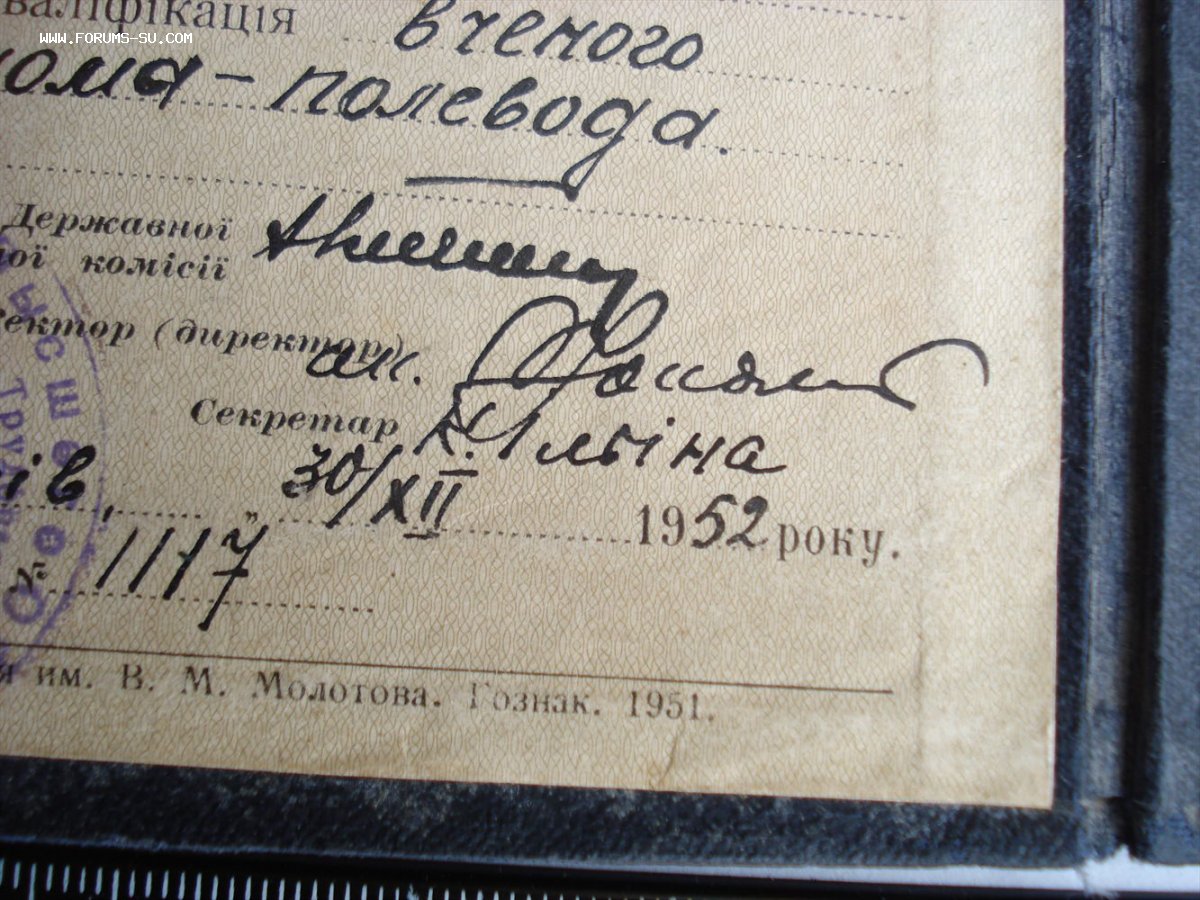 www.forums-su.com
валіфікація вченого
ома-полевода.
Державної
ої комісії
ектор (директор) ак.
Секретар К. Ільїна
ів, „ 30/XII 1952 року.
№ 1117
я им. В. М. Молотова. Гознак. 1951.